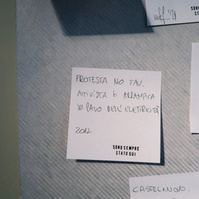 PROTESTA NO TAV.
ATTIVISTA SI ARRAMPICA
SU PALO DELL'ELETTRICITÀ
2012
SONO SEMPRE
STATO QUI
CASTELNUOVO